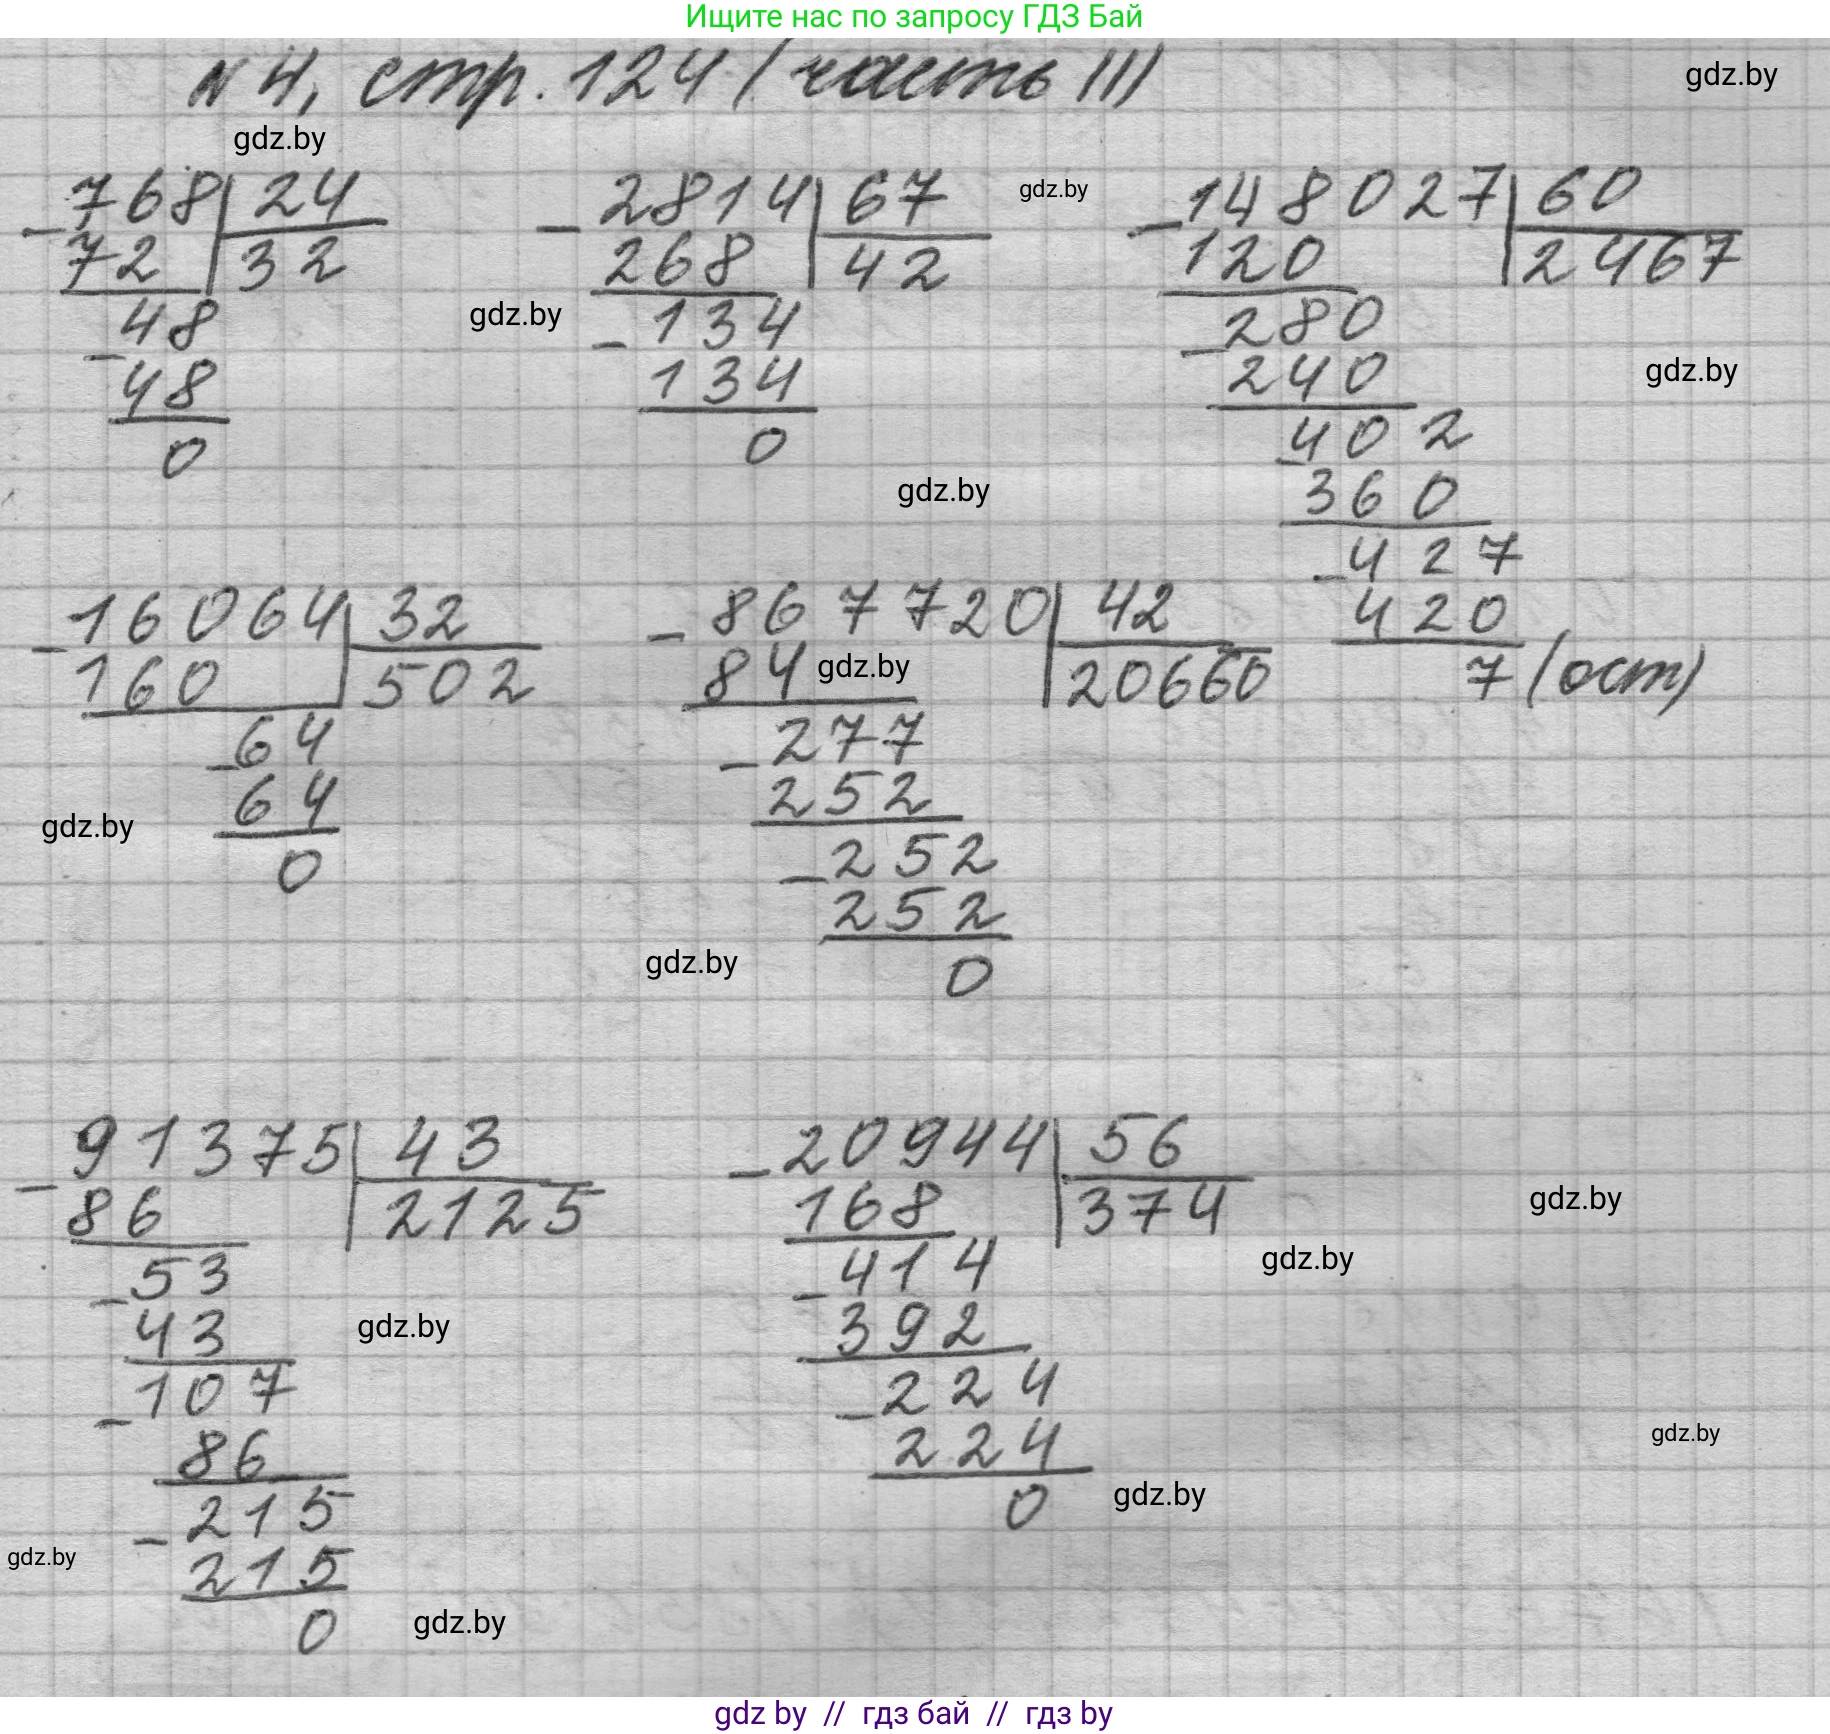 Ищите нас по запросу ГДЗ Бай
№ 4, стр. 124 (часть II)
gdz.by
gdz.by
768 24
- 72 32
48
- 48
0
2814 67
- 268 42
134
- 134
0
gdz.by
gdz.by
148027 60
- 120 2467
280
- 240
402
- 360
427
- 420
7 (ост)
gdz.by
gdz.by
16064 32
- 160 502
64
- 64
0
gdz.by
867720 42
- 84 20660
gdz.by
277
- 252
252
- 252
0
gdz.by
91375 43
- 86 2125
53
- 43
107
- 86
215
- 215
0
gdz.by
gdz.by
gdz.by
20944 56
- 168 374
414
- 392
224
- 224
0
gdz.by
gdz.by
gdz.by
gdz.by
gdz by // гдз бай // гдз by